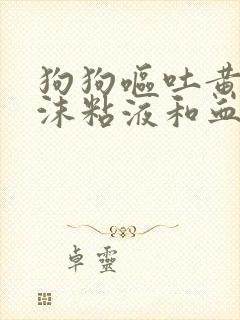 狗狗呕吐黄
沫粘液和血
卓靈